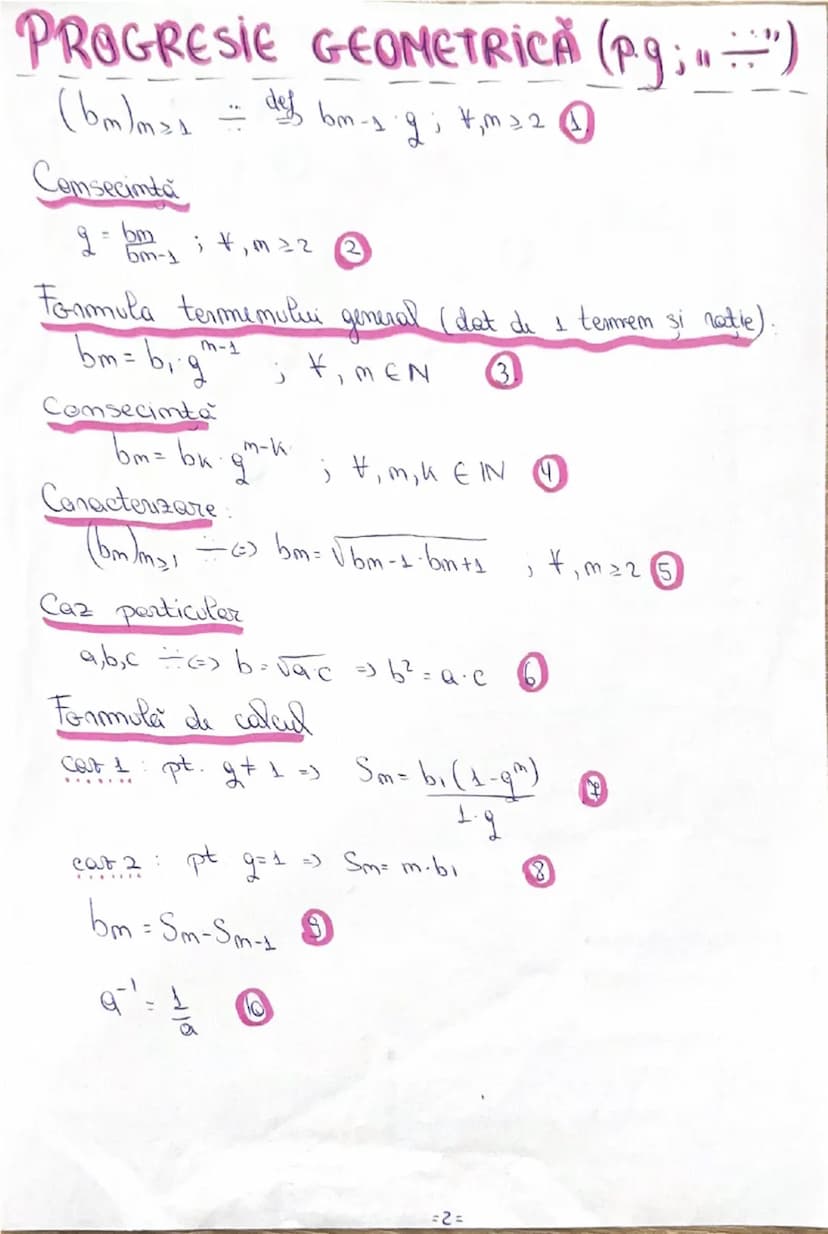 PROGRESIE GEOMETRICĂ (p.g ; „ ∺ ”)
(bn)n≥1 ∺ def⇔ bn-1 · q ; ∀, n ≥ 2 ①
Consecință
q = bn/bn-1 ; ∀, n ≥ 2 ②
Formula termenului general (dat de 1 termen și rație).
bn = b1 · q^n-1 ; ∀, n ∈ N ③
Consecință
bn = bk · q^n-k ; ∀, n, k ∈ N ④
Caracterizare:
(bn)n≥1 ∺ <=> bn = √(bn-1 · bn+1) ; ∀, n ≥ 2 ⑤
Caz particular
a,b,c ∺ <=> b = √(a·c) => b² = a·c ⑥
Formulă de calcul
caz 1 : pt. q ≠ 1 => Sn = b1(1-q^n)/1-q ⑦
caz 2 : pt q=1 => Sn = n·b1 ⑧
bn = Sn - Sn-1 ⑨
a^-1 = 1/a ⑩
=2=